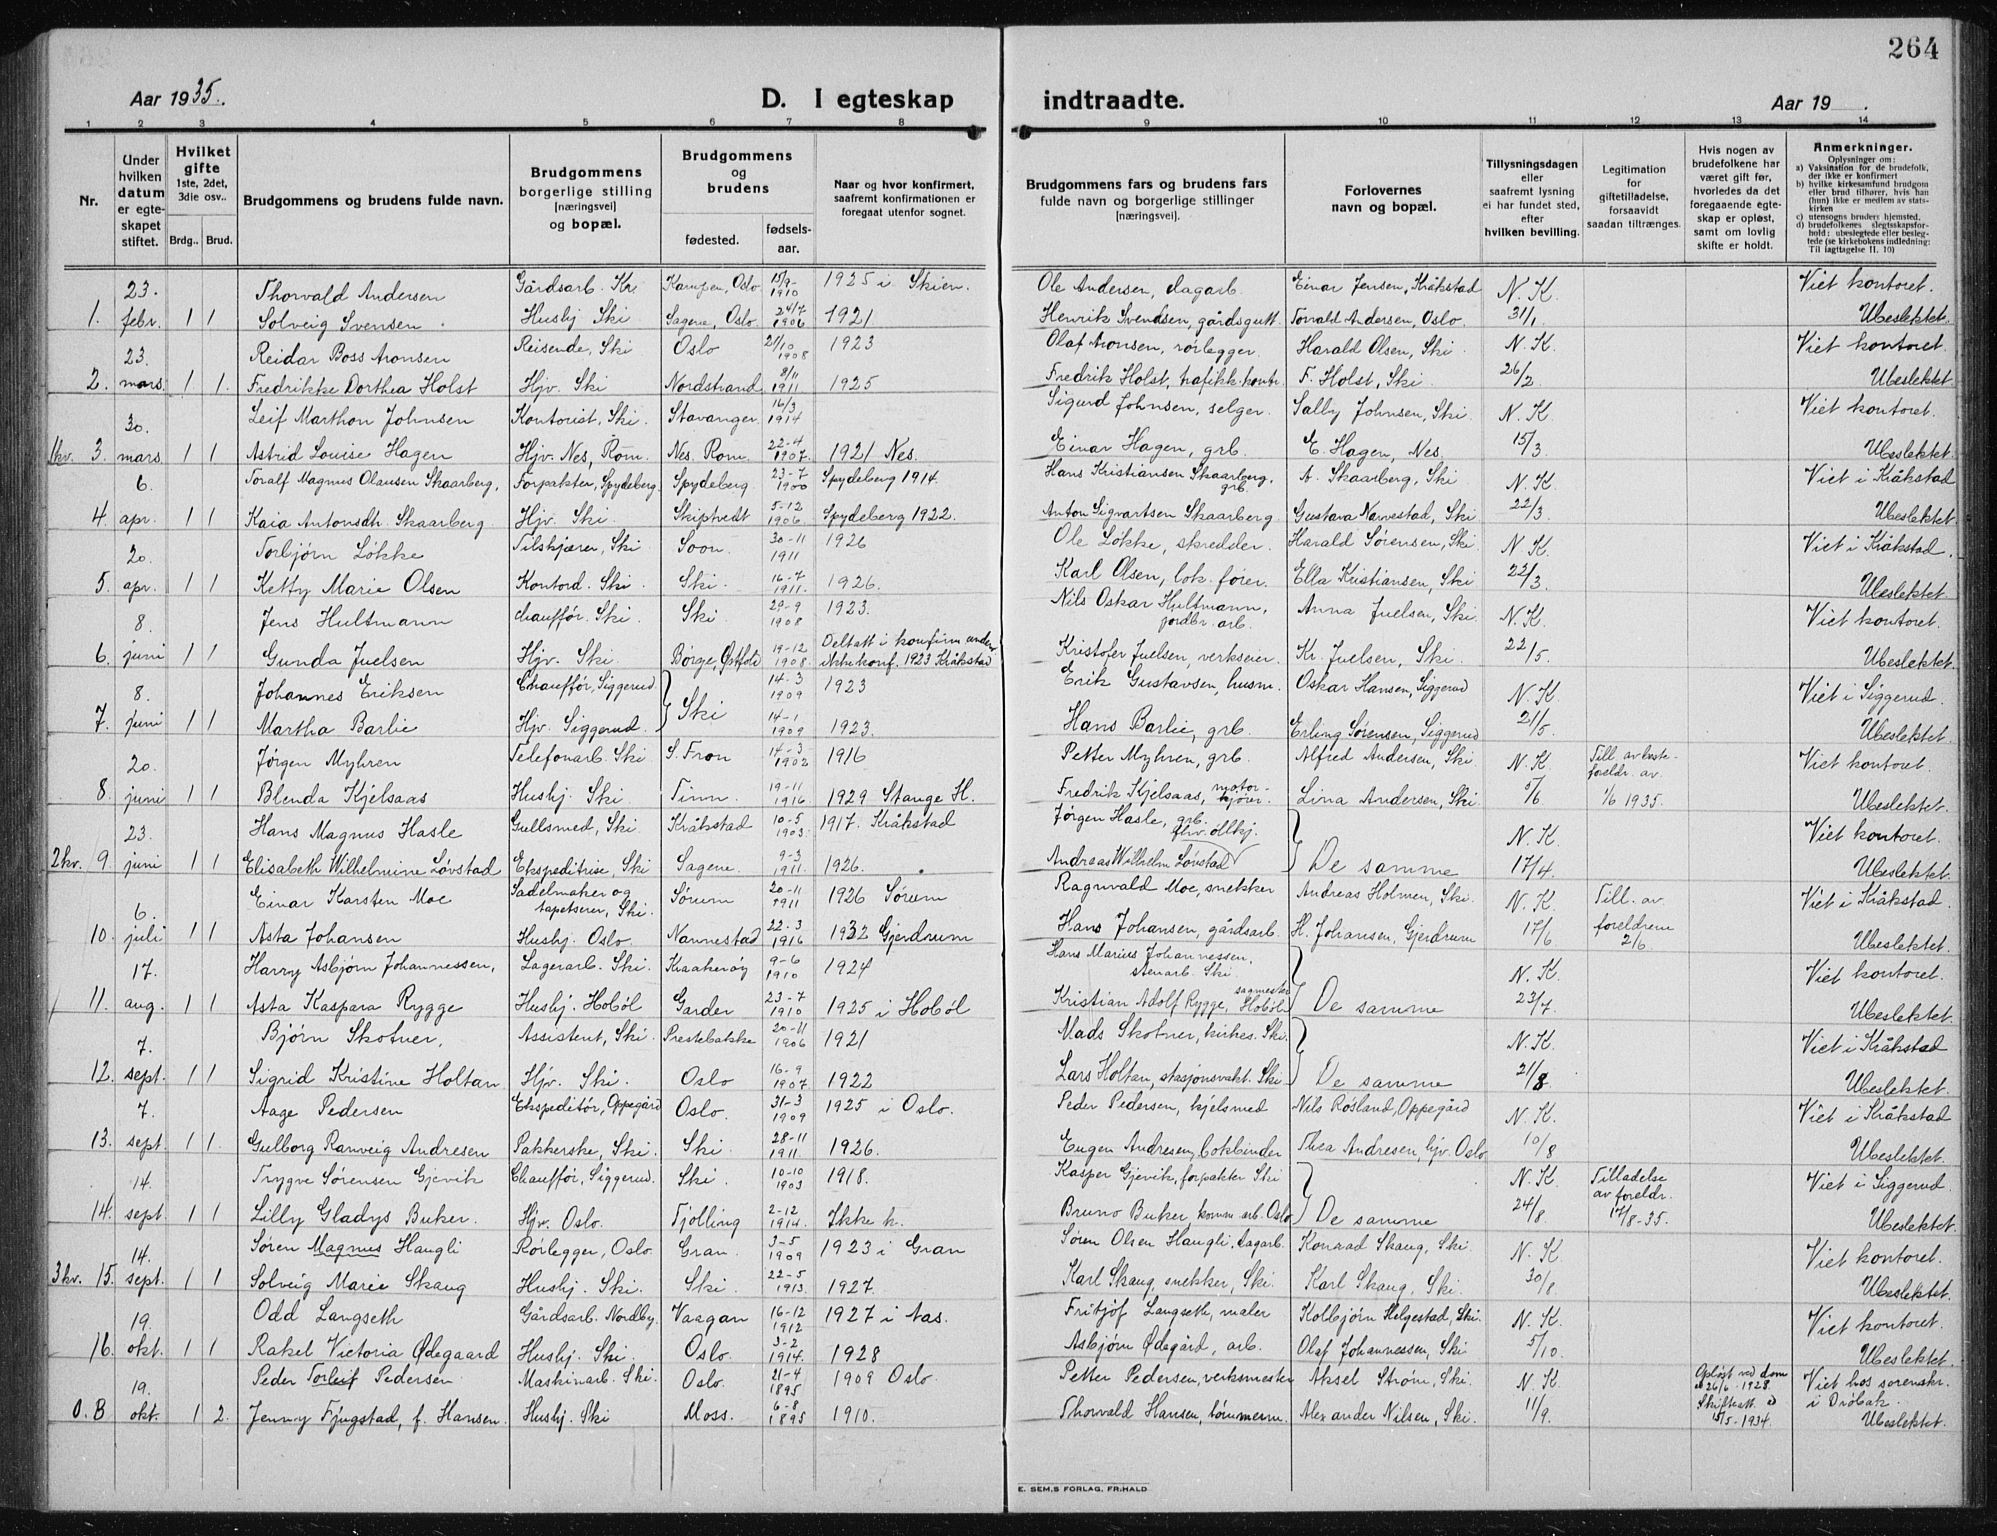 264
Aar 1935.
D. I egteskap indtraadte.
Aar 19 .
1 2 3 4 5 6 7 8 9 10 11 12 13 14
Nr.
Under hvilken datum er egteskapet stiftet.
Hvilket gifte 1ste, 2det, 3die osv..
Brdg.. Brud.
Brudgommens og brudens fulde navn.
Brudgommens borgerlige stilling [næringsvei] og bopæl.
Brudgommens og brudens
fødested. fødselsaar.
Naar og hvor konfirmert, saafremt konfirmationen er foregaat utenfor sognet.
Brudgommens fars og brudens fars fulde navn og borgerlige stillinger [næringsvei].
Forlovernes navn og bopæl.
Tillysningsdagen eller saafremt lysning ei har fundet sted, efter hvilken bevilling.
Legitimation for giftetilladelse, forsaavidt saadan tiltrænges.
Hvis nogen av brudefolkene har været gift før, hvorledes da det foregaaende egteskap er opløst, samt om lovlig skifte er holdt.
Anmerkninger.
Oplysninger om:
a) Vaksination for de brudefolk, der ikke er konfirmert
b) hvilke kirkesamfund brudgom eller brud tilhører, hvis han (hun) ikke er medlem av statskirken
c) utensogns bruders hjemsted.
d) brudefolkenes slegtsskapsforhold: ubeslegtede eller beslegtede (se kirkebokens indledning: Til iagttagelse II. 10)
23. Thorvald Andersen Gårdsarb. Kr. Kampen, Oslo 15/9-1910 1925 i Skien. Ole Andersen, dagarb. Einar Jensen, Kråkstad N. K. Viet kontoret.
1. febr. 1 1 Solveig Svensen Hushj. Ski Sagene, Oslo. 24/7 1906 1921 Henrik Svendsen, gårdsgutt. Torvald Andersen, Oslo. 31/1 Ubeslektet.
23. Reidar Boss Aronsen Reisende, Ski Oslo 21/10 1908 1923 Olaf Aronsen, rörlegger. Harald Olsen, Ski N. K. Viet kontoret.
2. mars. 1 1. Fredrikke Dorthea Holst Hjv. Ski Nordstrand 8/11 1911 1925 Fredrik Holst, trafikk.kontr. F. Holst, Ski 26/2 Ubeslektet
30. Leif Marthon Johnsen Kontorist, Ski. Stavanger 16/3 1914 Sigurd Johnsen, selger. Sally Johnsen, Ski N. K Viet kontoret
1kv. 3. mars 1 1 Astrid Louise Hagen Hjv. Nes, Rom. Nes. Rom. 22-4 1907. 1921 Nes. Einar Hagen, grb. E. Hagen, Nes 15/3 Ubeslektet
6. Toralf Magnus Olausen Skaarberg, Forpakter, Spydeberg. Spydeberg 23-7 1900 Spydeberg 1914. Hans Kristiansen Skaarberg, grb. A. Skaarberg, Ski N. K. Viet i Kråkstad
4 apr. 1 1 Kaia Antonsdtr. Skaarberg Hjv. Ski Skiptvedt 5-12 1906 Spydeberg 1922. Anton Sigvartsen Skaarberg Gustava Narvestad, Ski 22/3 Ubeslektet.
20. Torbjørn Løkke Tilskjærer, Ski Soon 30-11 1911 1926 Ole Løkke, skredder. Harald Sørensen, Ski N. K. Viet i Kråkstad.
5. apr. 1 1 Ketty Marie Olsen Kontord. Ski. Ski. 16-7 1911. 1926. Karl Olsen, lok. fører. Ella Kristiansen, Ski 22/3 Ubeslektet.
8. Jens Hultmann chauffør. Ski. Ski. 29-9 1908 1923. Nils Oskar Hultmann, jordbr. arb. Anna Juelsen, Ski. N. K. Viet kontoret.
6. juni 1 1 Gunda Juelsen Hjv. Ski. Børge, Østfold 19-12 1908. Deltatt i konfirm.underv. ikke konf. 1923 Kråkstad Kristofer Juelsen, verkseier. Kr. Juelsen, Ski. 22/5. Ubeslektet
8. Johannes Eriksen Chauffør, Siggerud 14-3 1909 1923 Erik Gustavsen, husm. Oskar Hansen, Siggerud N. K. Viet i Siggerud
7. juni 1 1 Martha Barlie Hjv. Siggerud. Ski 14-1 1909 1923. Hans Barlie, grb. Erling Sörensen, Siggerud 21/5 Ubeslektet.
20. Jørgen Myhren Telefonarb. Ski S. Fron 14-3 1902 1916 Petter Myhren, grb. Alfred Andersen, Ski. N. K Till. av foreldr. av Viet kontoret.
8. juni 1 1 Blenda Kjelsaas Hushj. Ski. Tinn. 19-11 1916. 1929 Stange H. Fredrik Kjelsaas, motorkjörer. Lina Andersen, Ski. 5/6 1/6 1935. Ubeslektet.
23. Hans Magnus Hasle Gullsmed, Ski Kråkstad 10-5 1903. 1917. Kråkstad Jørgen Hasle, grb. N. K Viet kontoret
2kv. 9 juni 1 1 Elisabeth Wilhelmine Løvstad Ekspeditrise, Ski Sagene. 9-3 1911 1926. Andreas Wilhelm Løvstad De samme 17/4. Ubeslektet.
6. Einar Karsten Moe Sadelmaker og tapetserer, Ski. Sörum 20-11 1911 1926 Sörum Ragnvald Moe, snekker Andreas Holmen, Ski. N. K. Till. av Viet i Kråkstad.
10. juli 1 1 Asta Johansen Hushj. Oslo. Nannestad 22-3 1916 1932 Gjerdrum Hans Johansen, gårdsarb. H. Johansen, Gjerdrum 17/6 foreldrene 2/6. Ubeslektet.
17. Harry Asbjørn Johannessen, Lagerarb. Ski. Kraakerøy 9-6 1910 1924 Hans Marius Johannessen, stenarb. Ski. N. K. Viet kontoret.
11. aug. 1 1 Asta Kaspara Rygge Hushj. Hobøl Garder 23-7 1910 1925 i Hobøl Kristian Adolf Rygge, sagmester Hobøl De samme 23/7. Ubeslektet.
7. Bjørn Skotner, Assistent, Ski. Prestebakke 20-11 1906 1921 Mads Skotner, kirkes. Ski. N. K. Viet i Kråkstad
12. sept. 1 1 Sigrid Kristine Holtan Hjv. Ski. Oslo 16-9 1907 1922 Lars Holtan, stasjonsvakt. Ski De samme 21/8 Ubeslektet.
7. Aage Pedersen Ekspeditør, Oppegård Oslo. 31-3 1909 1925 i Oslo. Peder Pedersen, kjelsmed Nils Røsland, Oppegård N. K. Viet i Kråkstad
13. sept. 1 1. Gulborg Ranveig Andresen Pakkerske, Ski. Ski. 28-11 1911. 1926. Eugen Andresen, bokbinder Thea Andresen, hjv. Oslo 10/8 Ubeslektet.
14. Trygve Sørensen Gjevik Chauffør, Siggerud. Ski. 10-10 1903 1918. Kasper Gjevik, forpakter Ski N. K Tilladelse Viet i Siggerud.
14. sept. 1 1 Lilly Gladys Buker. Hjv. Oslo. Tjölling 2-12 1914. Ikke k. Bruno Buker, komm. arb. Oslo De samme 24/8 av foreldr. 17/8-35. Ubeslektet.
14. Søren Magnus Haugli Rørlegger, Oslo. Gran. 3-5 1909 1923 i Gran Søren Olsen Haugli, dagarb. Konrad Skaug, Ski N. K. Viet kontoret.
3kv. 15. sept. 1 1 Solveig Marie Skaug Hushj. Ski. Ski 22-5 1913. 1927. Karl Skaug, snekker, Ski. Karl Skaug, Ski. 30/8 Ubeslektet.
19. Odd Langseth Gårdsarb. Nordby. Vaagan 16-12 1912 1927 i Aas. Fritjof Langseth, maler Kolbjørn Helgestad, Ski. N. K. Viet kontoret.
16. okt. 1 1 Rakel Victoria Ødegaard Hushj. Ski. Oslo. 3-2 1914. 1928 Asbjørn Ødegård, arb. Olaf Johannessen, Ski 5/10. Ubeslektet.
19. Peder Torleif Pedersen Maskinarb. Ski. Oslo. 21-4 1895 1909 Oslo. Petter Pedersen, verksmester Aksel Strøm, Ski. N. K. Opløst ved dom 26/6 1928. Viet hos sorenskr.
O. B okt. 1 2. Jenny Fjugstad, f. Hansen. Hushj. Ski Moss. 6-8 1895 1910. Thorvald Hansen, tømmerm. Alexander Nilsen, Ski. 11/9. Skifteatt. 15/5-1934. i Drøbak. Ubeslektet.
E. SEM,S FORLAG, FR:HALD